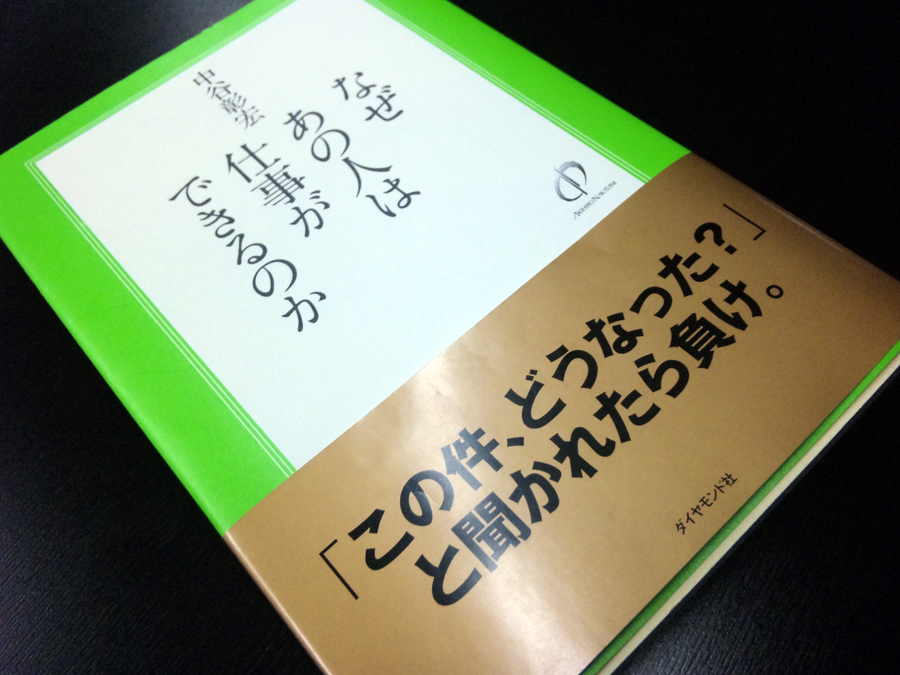 なぜ
あの人は
仕事が
できるのか
中谷彰宏
「この件、どうなった?」
と聞かれたら負け。
ダイヤモンド社